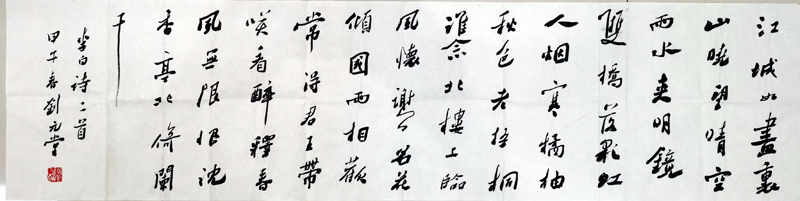 江城如畫裏
山晚望晴空
兩水夾明鏡
雙橋落彩虹
人烟寒橘柚
秋色老梧桐
誰念北樓上臨
風懷謝公名花
傾國兩相歡
常得君王帶
咲看解釋春
風無限恨沈
香亭北倚闌
干
李白詩二首
甲午春劉元堂